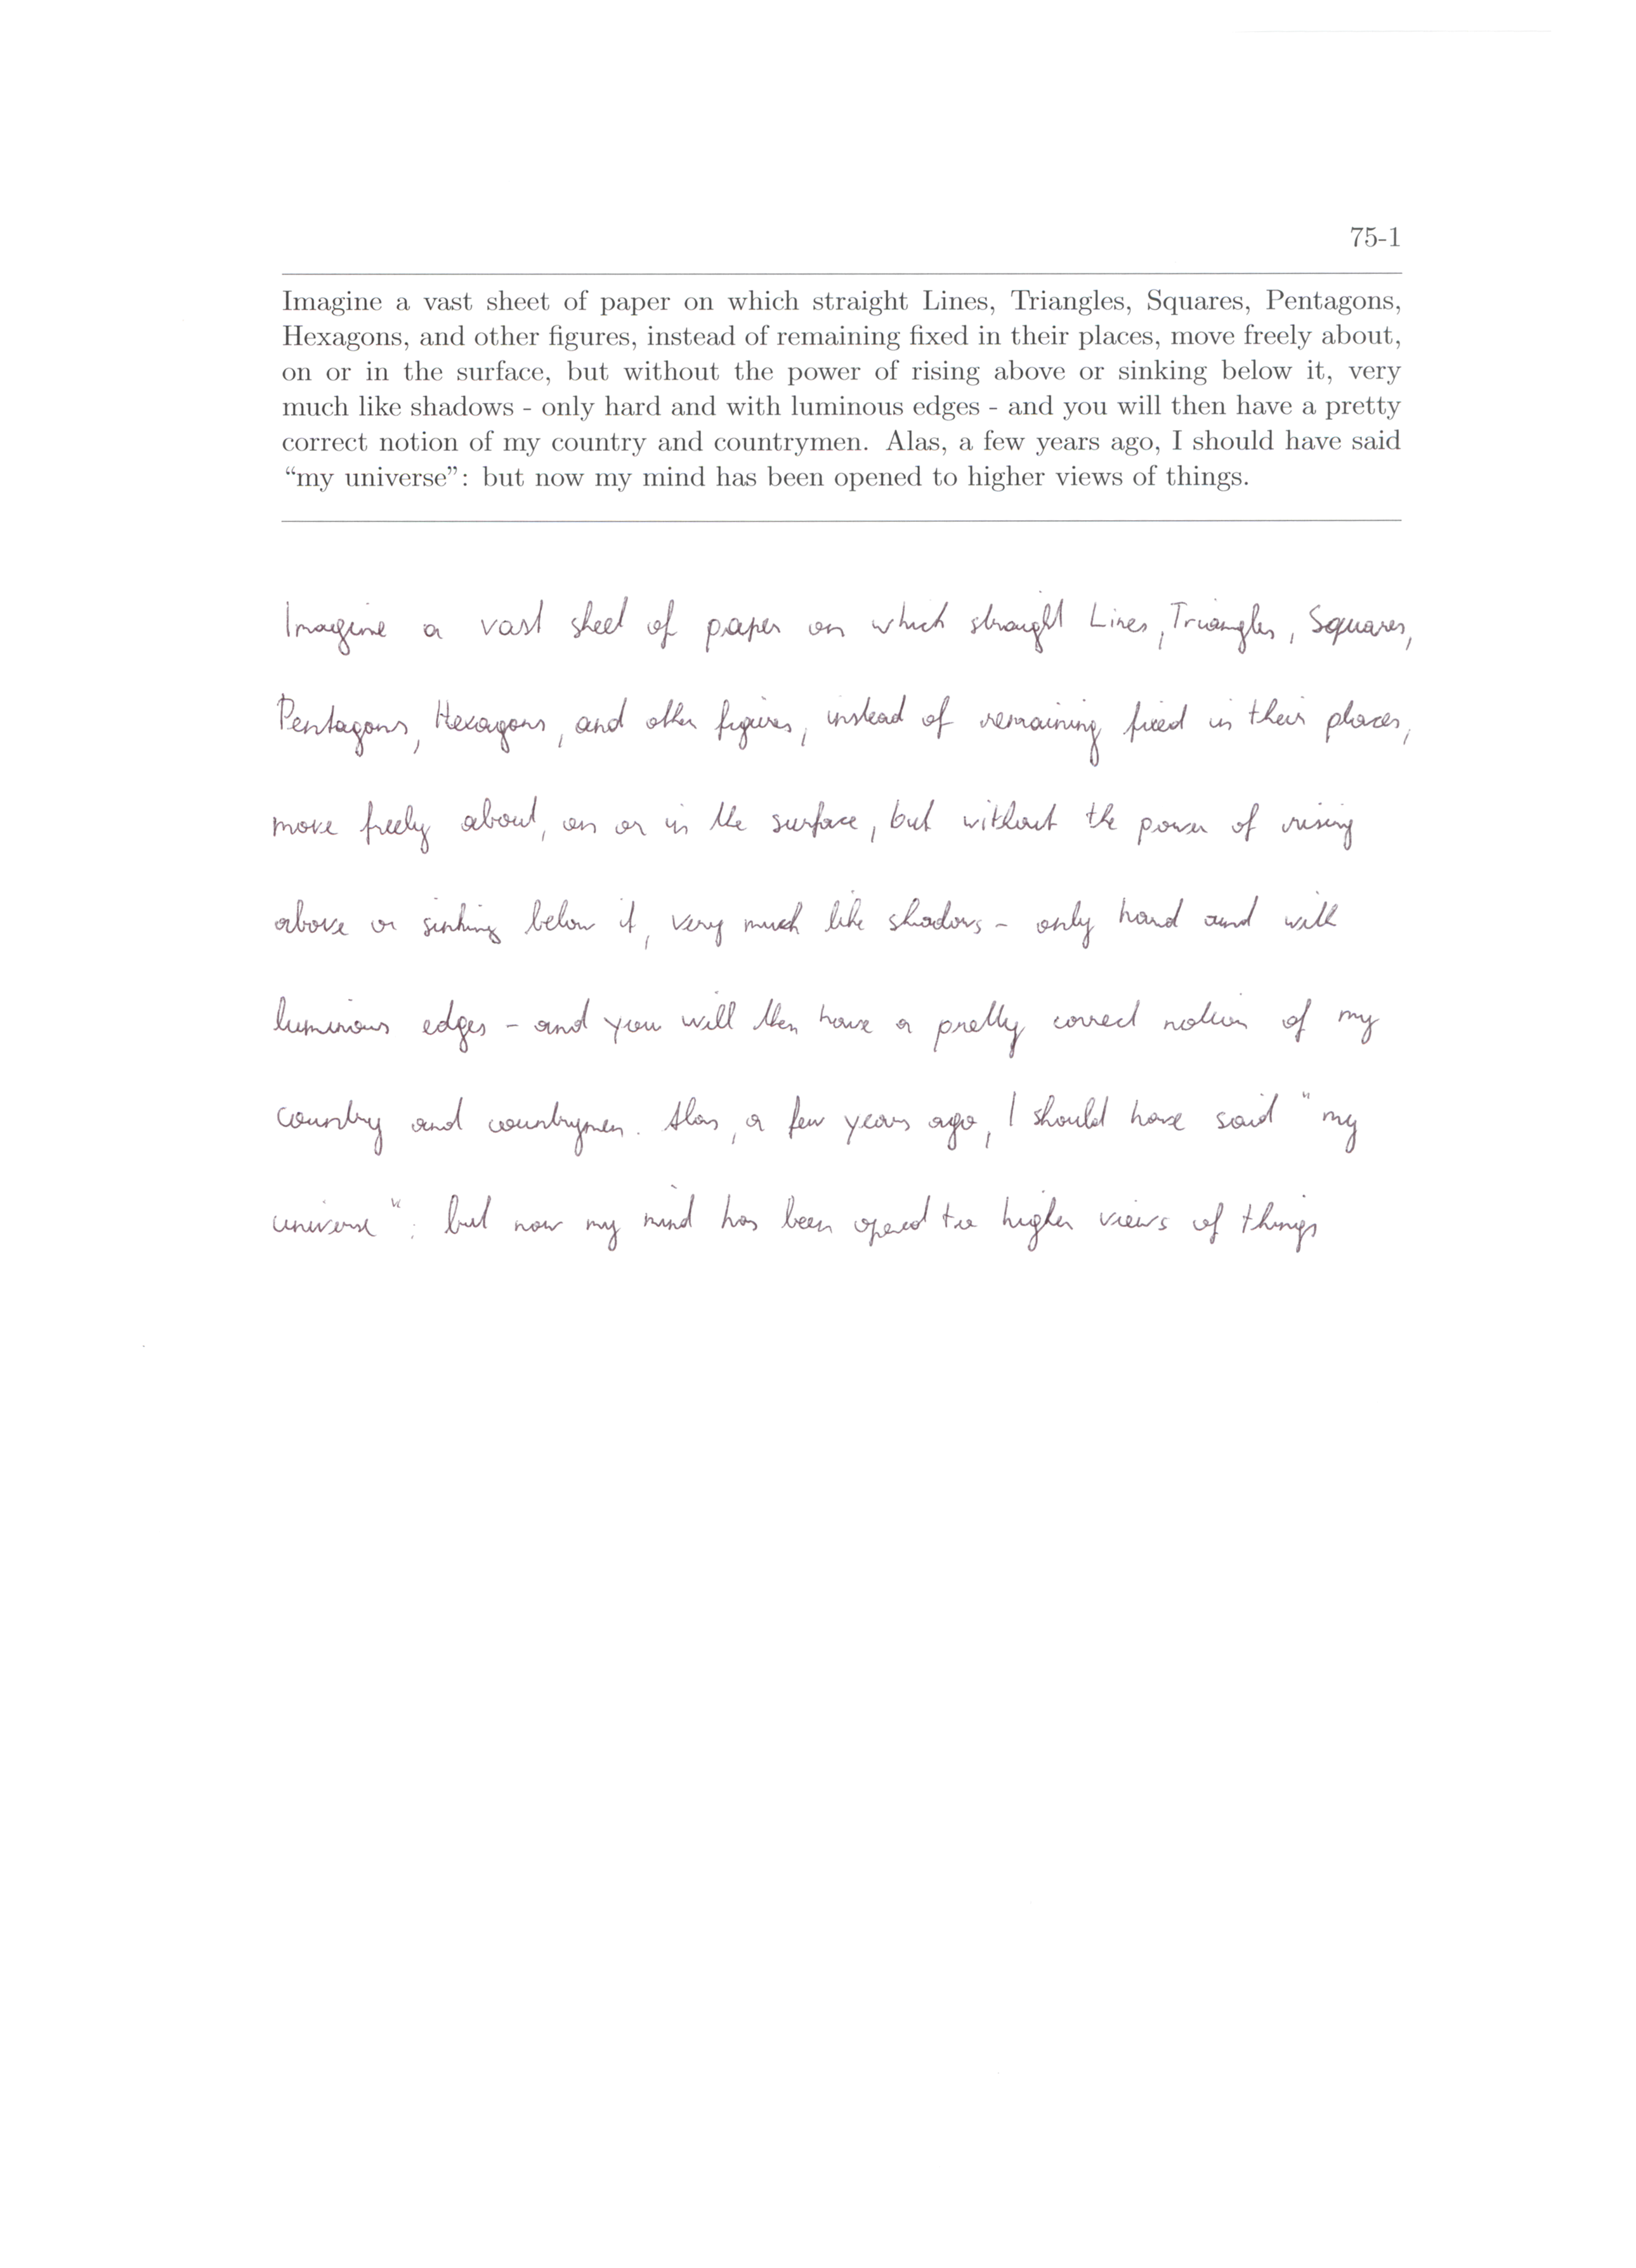 75-1
Imagine a vast sheet of paper on which straight Lines, Triangles, Squares, Pentagons,
Hexagons, and other figures, instead of remaining fixed in their places, move freely about,
on or in the surface, but without the power of rising above or sinking below it, very
much like shadows - only hard and with luminous edges - and you will then have a pretty
correct notion of my country and countrymen. Alas, a few years ago, I should have said
“my universe”: but now my mind has been opened to higher views of things.
Imagine a vast sheet of paper on which straight Lines, Triangles, Squares,
Pentagons, Hexagons, and other figures, instead of remaining fixed in their places,
move freely about, on or in the surface, but without the power of rising
above or sinking below it, very much like shadows - only hard and with
luminous edges - and you will then have a pretty correct notion of my
country and countrymen. Alas, a few years ago, I should have said "my
universe": but now my mind has been opened to higher views of things